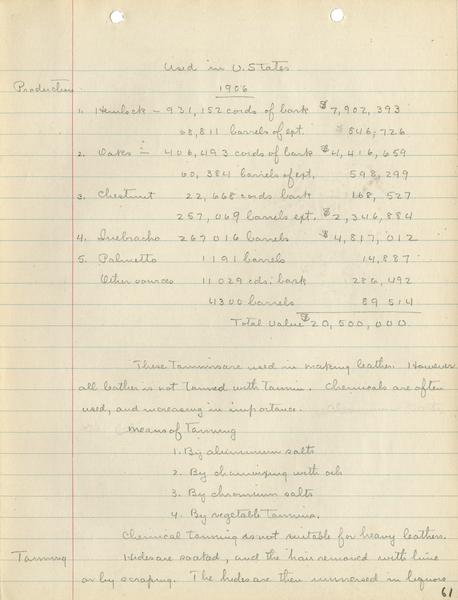 Used in U. States
1906
Production
1. Hemlock – 931,152 cords of bark $7,902,393
68,811 barrels of ext. $846,726
2. Oaks – 406,493 cords of bark $4,416,659
60,384 barrels of ext. 598,299
3. Chestnut 22,668 cords bark 168,527
257,069 barrels ext. $2,346,884
4. Quebracho 267016 barrels $4,817,012
5. Palmetto 1191 barrels 14,887
Other sources 11029 cds. bark 286,492
4300 barrels 89514
Total value $20,500,000
These Tannins are used in making leather. However
all leather is not Tanned with Tannin. Chemicals are often
used, and increasing in importance.
Means of Tanning
1. By aluminum salts
2. By chamoising with oils
3. By chromium salts
4. By vegetable Tannins.
Chemical tanning is not suitable for heavy leathers.
Tanning Hides are soaked, and the hair removed with lime
or by scraping. The hides are then immersed in liquors
61